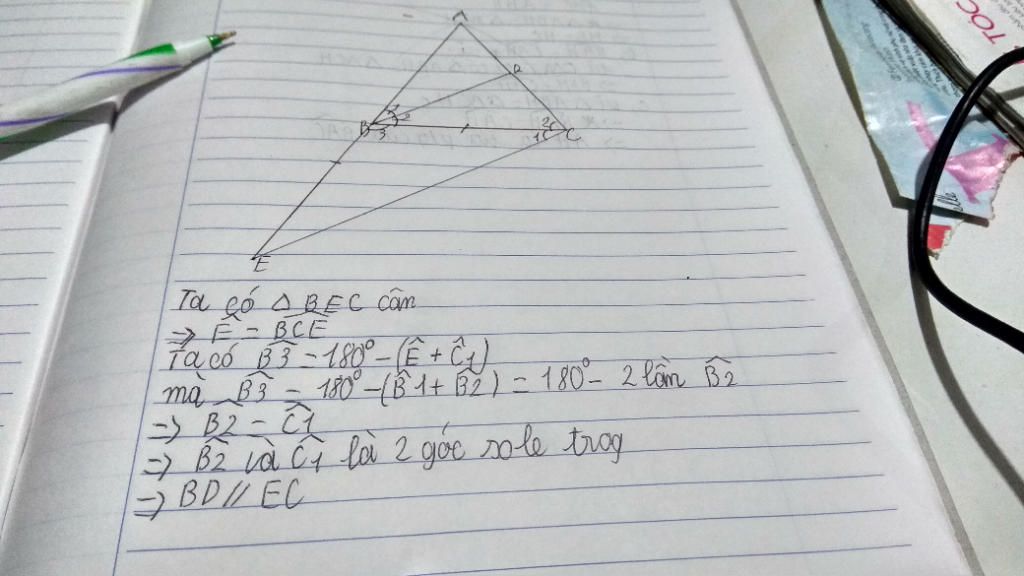 A
D
B 1 2 3
2 C
1
E
Ta có △ BEC cân
=> Ê = BCE
Ta có B̂3 = 180° - (Ê + Ĉ1)
mà B̂3 = 180° - (B̂1 + B̂2) = 180° - 2 lần B̂2
=> B̂2 = Ĉ1
=> B̂2 và Ĉ1 là 2 góc sole trog
=> BD // EC
TOC